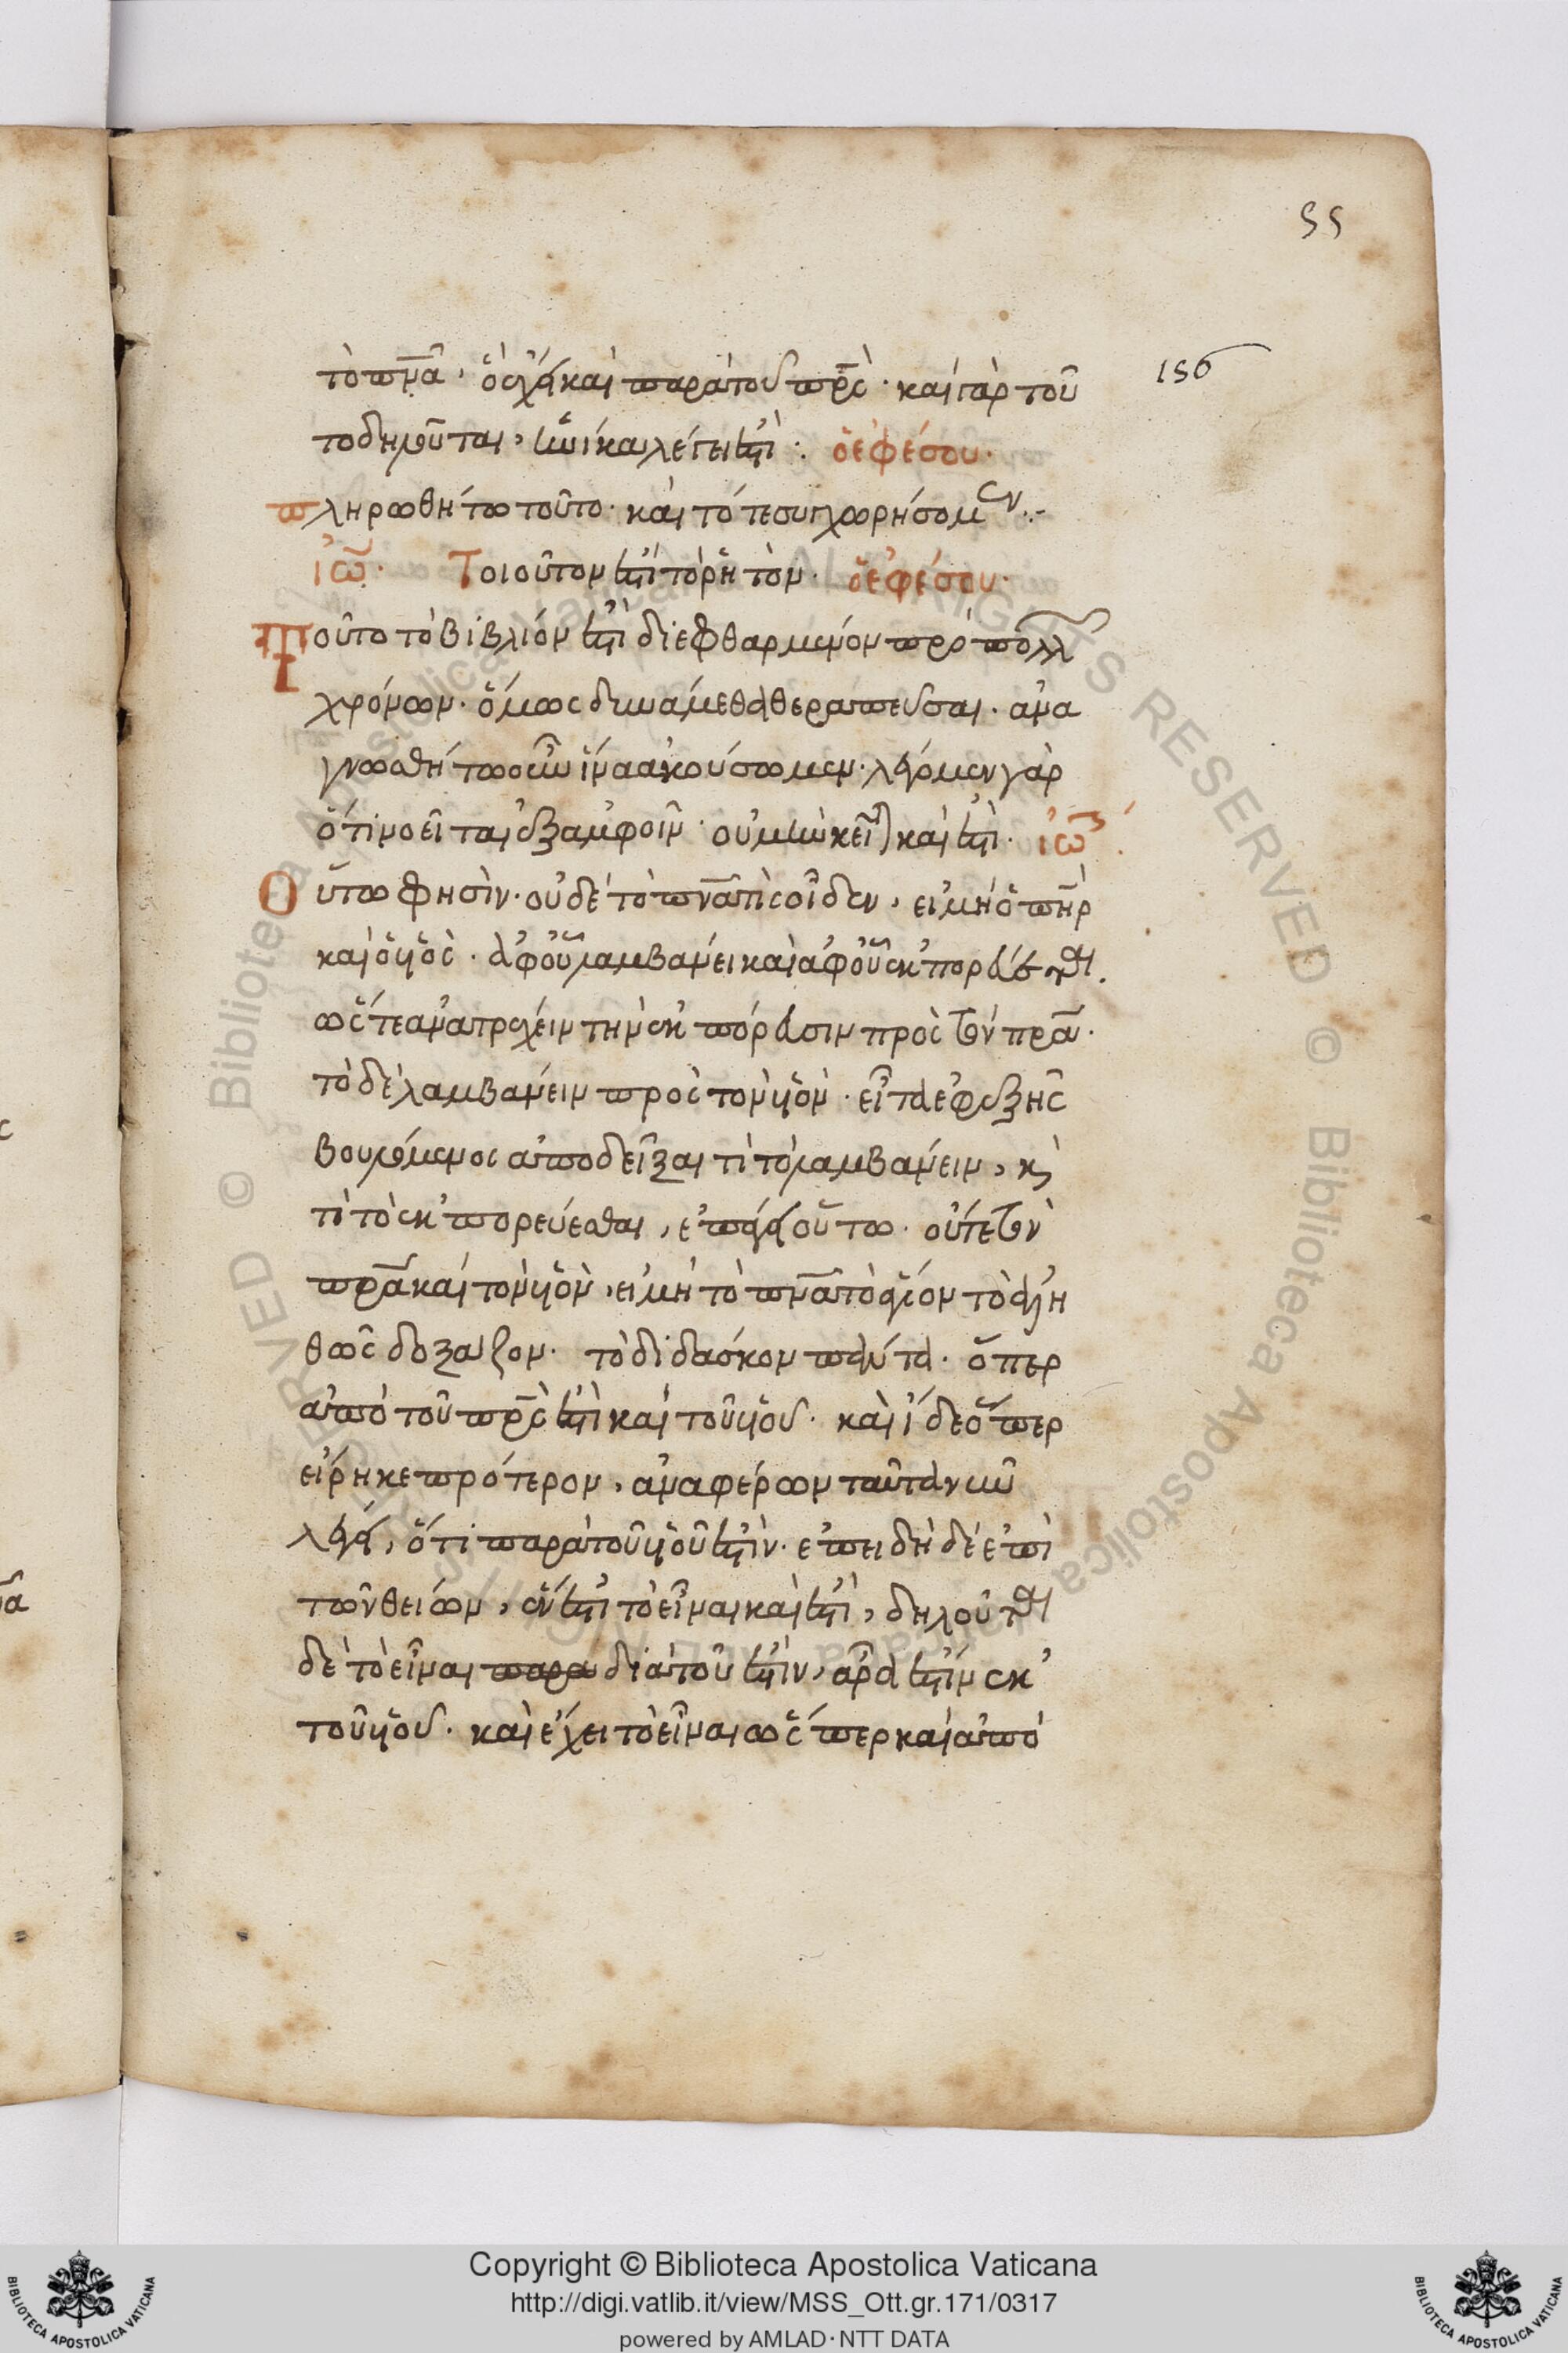 55
156
τὸ πνα̅· ὃ ἔχει καὶ παρὰ τοῦ πρς̅· καὶ γὰρ τοῦ
το δηλοῦται, ἵν' ᾖ καὶ λέγει ἐστὶ: ὁ ἐφέσου·
πληρωθήτω τοῦτο· καὶ τότε συγχωρήσομεν.
ἰω̅. Τοιοῦτον ἐστὶ τὸ ῥητόν· ὁ ἐφέσου·
Τοῦτο τὸ βιβλίον ἐστὶ διεφθαρμένον πρὸ πολλ
χρόνων· ὅμως δυνάμεθα θεραπεῦσαι· ἀνα
γνωσθήτω οὖν ἵνα ἀκούσωμεν· λέγομεν γὰρ
ὅτι νοεῖται ἐξ ἀμφοῖν· οὐ μὴν κεῖται καὶ ἐστὶ· ἰω̅.
Οὕτω φησὶν· οὐδὲ τὸ πνα̅ τὶς οἶδεν, εἰ μὴ ὁ πηρ̅
καὶ ὁ υἱὸς· ἀφ' οὗ λαμβάνει καὶ ἀφ' οὗ ἐκπορεύεται.
ὥστε ἀνατρέχειν τὴν ἐκπόρευσιν πρὸς τὸν πρα̅·
τὸ δὲ λαμβάνειν πρὸς τὸν υἱὸν· εἶτα ἐφεξῆς
βουλόμενος ἀποδεῖξαι τί τὸ λαμβάνειν, κὶ
τί τὸ ἐκπορεύεσθαι, ἐπάγει οὕτω· οὔτε τὸν
πρα̅ καὶ τὸν υἱὸν, εἰ μὴ τὸ πνα̅ τὸ ἅγιον τὸ ἀλη
θῶς δοξάζον· τὸ διδάσκον πάντα· ὅπερ
ἀπὸ τοῦ πρς̅ ἐστὶ καὶ τοῦ υἱοῦ· καὶ ἴδε ὅπερ
εἴρηκε πρότερον, ἀναφέρων ταῦτα νῦν
λέγει, ὅτι παρὰ τοῦ υἱοῦ ἐστὶν· ἐπειδὴ δὲ ἐπὶ
τῶν θείων, ἕν ἐστὶ τὸ εἶναι καὶ ἐστὶ, δηλοῦται
δὲ τὸ εἶναι παρα διὰ τοῦ ἐστὶν, ἆρα ἐστὶν ἐκ
τοῦ υἱοῦ· καὶ ἔχει τὸ εἶναι ὥσπερ καὶ ἀπὸ
Copyright © Biblioteca Apostolica Vaticana
http://digi.vatlib.it/view/MSS_Ott.gr.171/0317
powered by AMLAD·NTT DATA